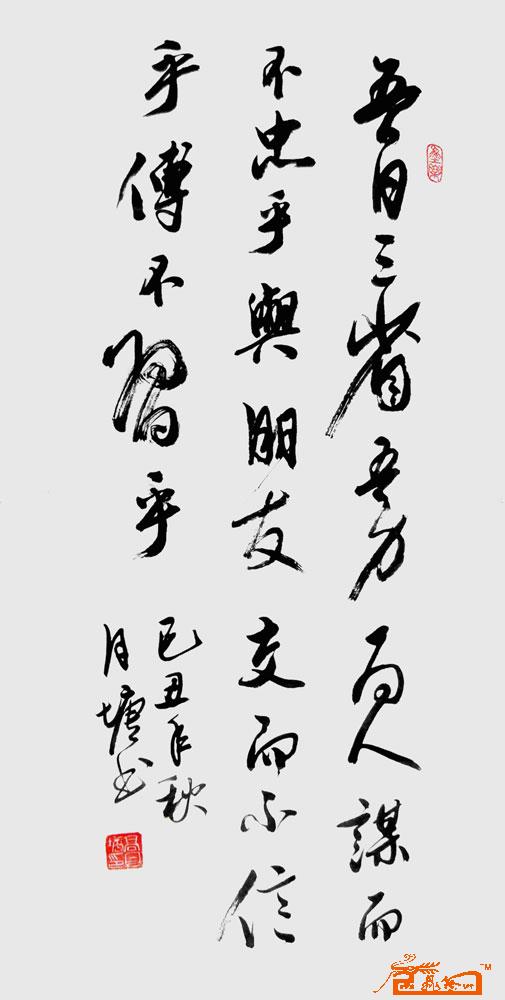 吾日三省吾身為人謀而
不忠乎與朋友交而不信
乎傳不習乎
己丑年秋
月塘书